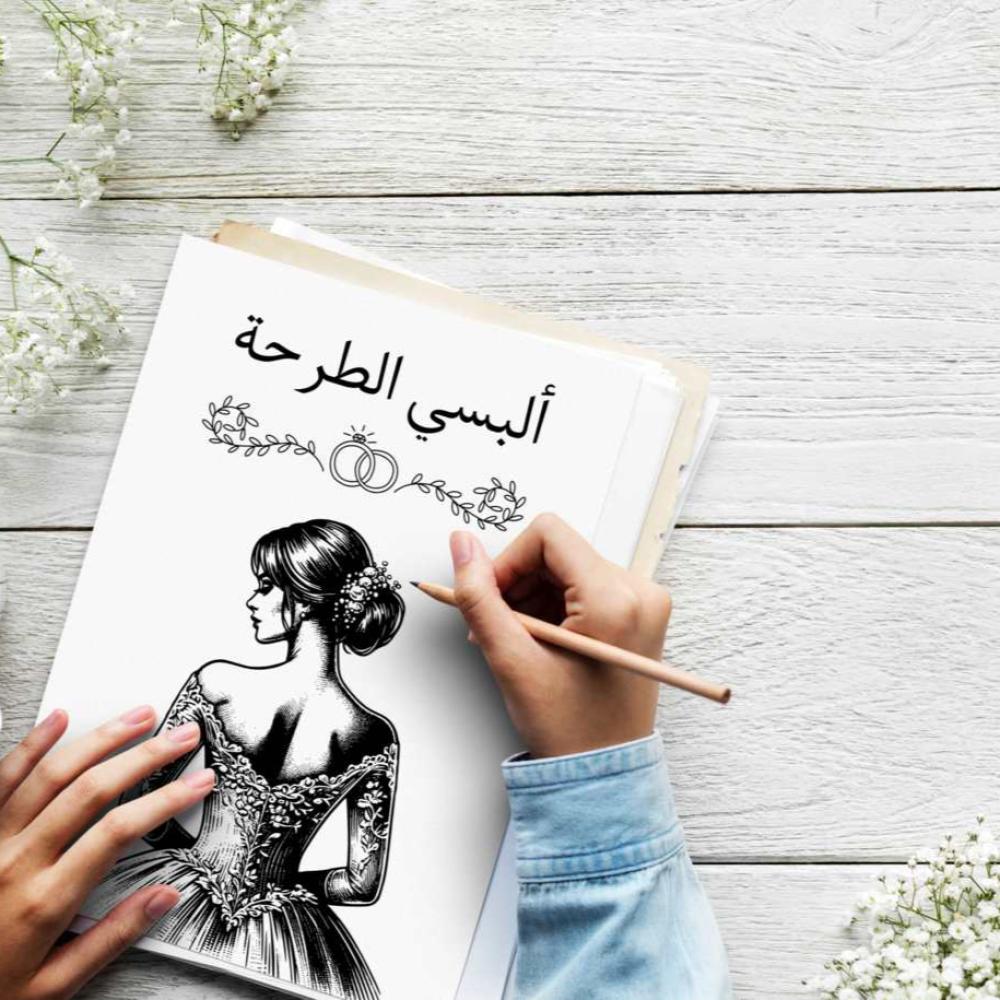 ألبسي الطرحة